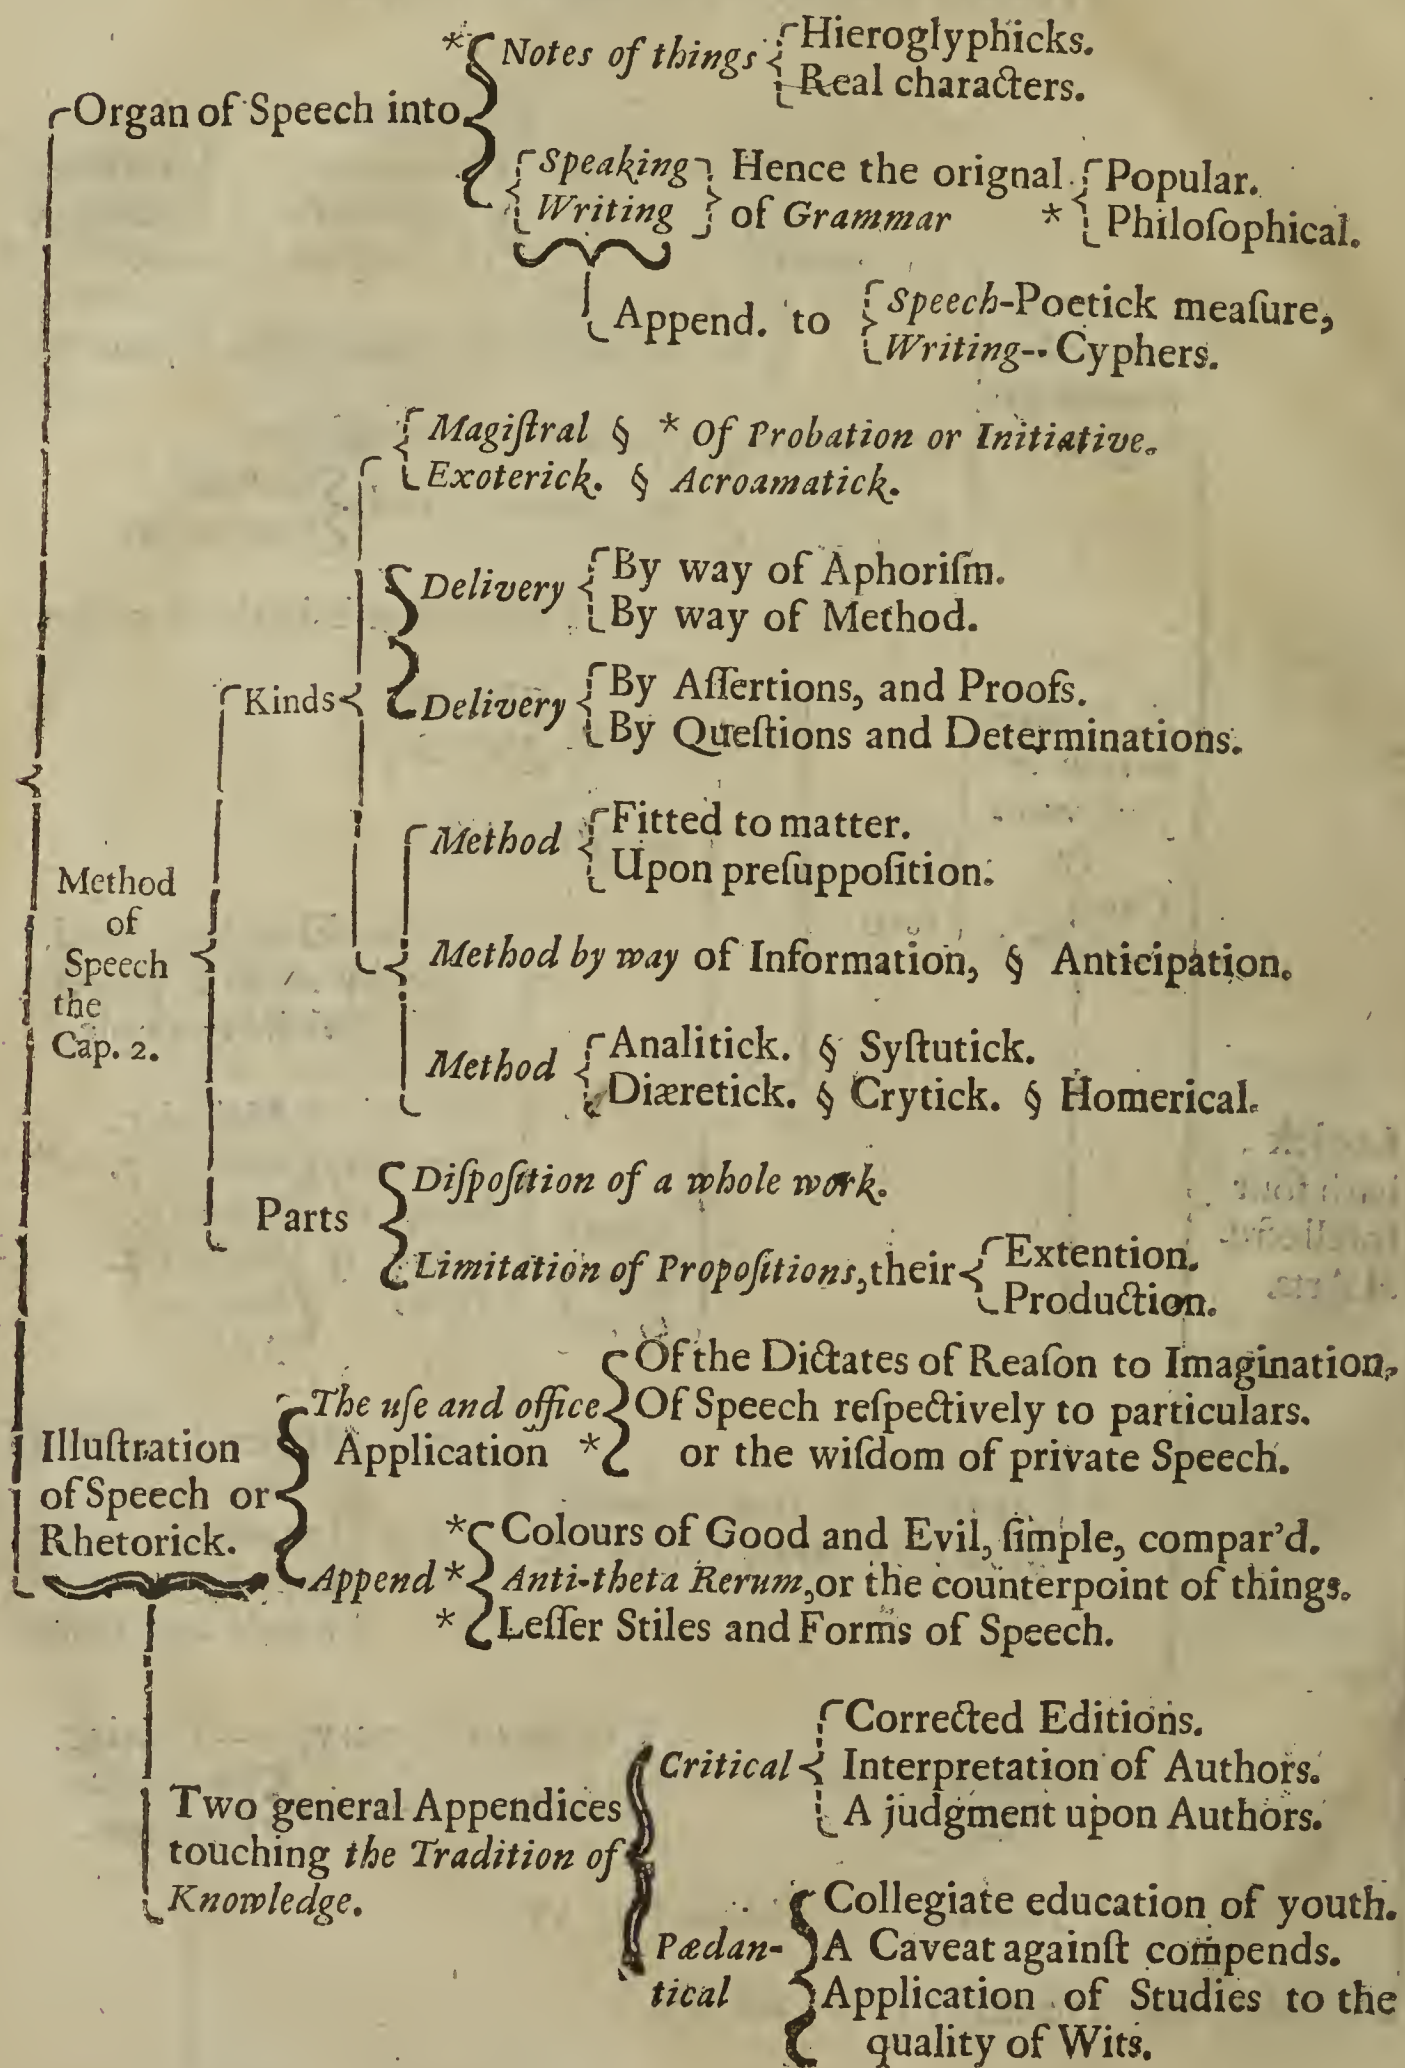 * Notes of things Hieroglyphicks.
Real characters.
Organ of Speech into
Speaking Hence the orignal Popular.
Writing of Grammar * Philoſophical.
Append. to Speech-Poetick meaſure,
Writing-- Cyphers.
Magiſtral § * Of Probation or Initiative.
Exoterick. § Acroamatick.
Delivery By way of Aphoriſm.
By way of Method.
Kinds Delivery By Aſſertions, and Proofs.
By Queſtions and Determinations.
Method Fitted to matter.
Upon preſuppoſition.
Method
of
Speech
the
Cap. 2.
Method by way of Information, § Anticipation.
Method Analitick. § Syſtutick.
Diæretick. § Crytick. § Homerical.
Parts Diſpoſition of a whole work.
Limitation of Propoſitions, their Extention.
Production.
Illuſtration
of Speech or
Rhetorick.
The uſe and office Of the Dictates of Reaſon to Imagination,
Application * Of Speech reſpectively to particulars.
or the wiſdom of private Speech.
Append * * Colours of Good and Evil, ſimple, compar'd.
Anti-theta Rerum, or the counterpoint of things.
* Leſſer Stiles and Forms of Speech.
Two general Appendices
touching the Tradition of
Knowledge.
Critical Corrected Editions.
Interpretation of Authors.
A judgment upon Authors.
Pædan-
tical
Collegiate education of youth.
A Caveat againſt compends.
Application of Studies to the
quality of Wits.